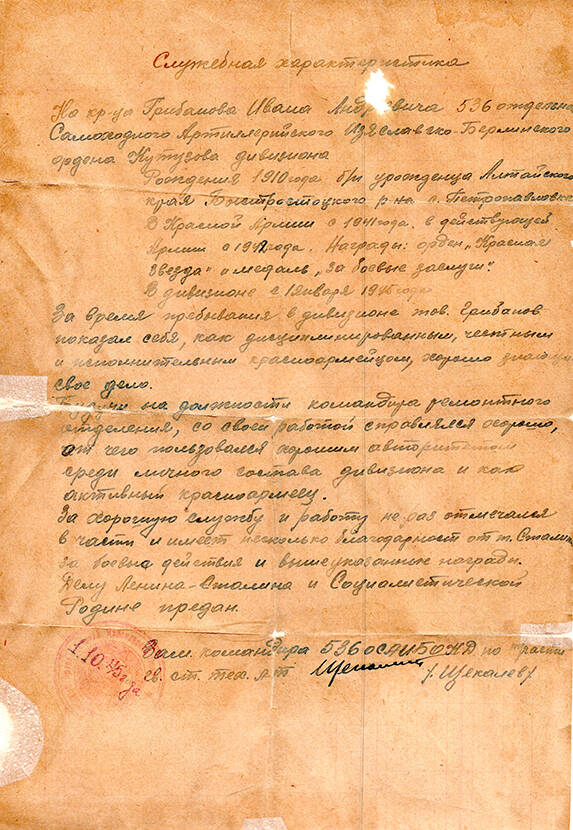 Служебная характеристика
На кр-ца Грибанова Ивана Андреевича 536 отдельна
Самоходного Артиллерийского Изяславско-Берлинского
ордена Кутузова дивизиона
Рождения 1910 года б/п урожденца Алтайского
края Быстроистоцкого р-на с. Петропавловка
В Красной Армии с 1941 года, в действующей
Армии с 1942 года. Награды: орден "Красная
Звезда" и медаль "За боевые заслуги".
В дивизионе с января 1945 года
За время пребывания в дивизионе тов. Грибанов
показал себя, как дисциплинированным, честным
и исполнительным красноармейцом, хорошо знающи
свое дело.
Будучи на должности командира ремонтного
отделения, со своей работой справлялся хорошо,
от чего пользовался хорошим авторитетом
среди личного состава дивизиона и как
активный красноармеец.
За хорошую службу и работу не раз отмечался
в части и имеет несколько благодарност от т. Сталина
за боевые действия и вышеуказанных наград.
Делу Ленина-Сталина и Социалистической
Родине предан.
Зам. командира 536 ОСАИБОКД по части
гв. ст. тех. л-т /Щекалев/
1 10 45 года